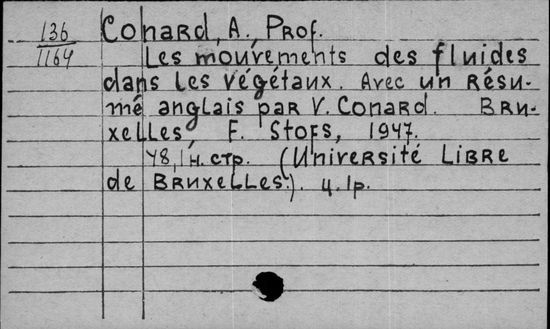 136
1164
Conard, A., Prof.
Les mouvements des fluides
dans les végétaux. Avec un résu-
mé anglais par V. Conard. Bru-
xelles, F. Stofs, 1947.
48, 1 н. стр. (Université Libre
de Bruxelles.). ц. 1р.